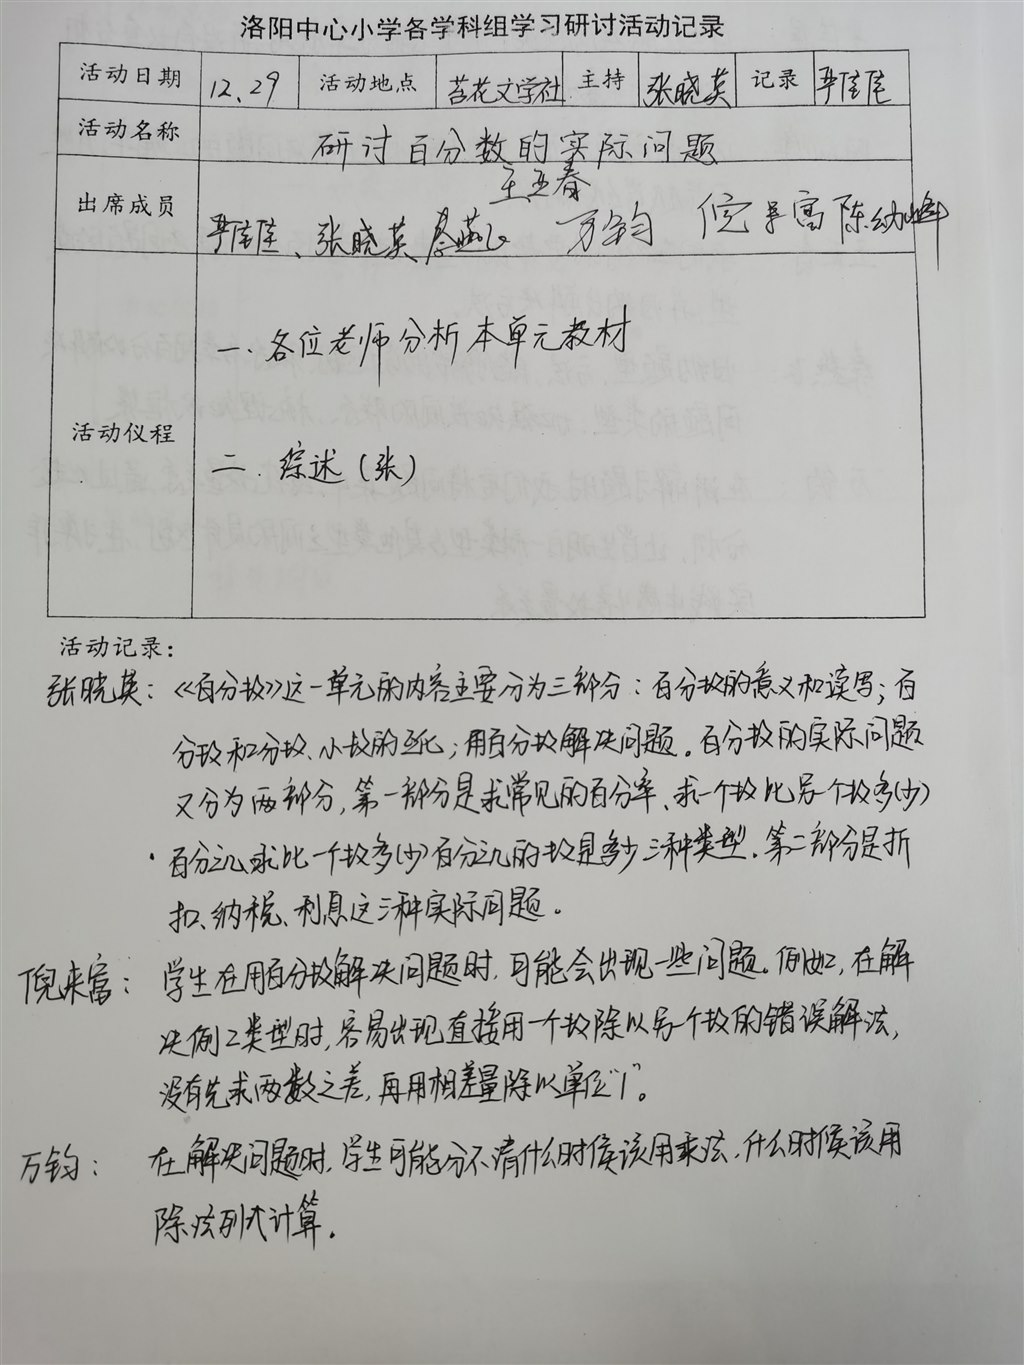 洛阳中心小学各学科组学习研讨活动记录
活动日期 12.29 活动地点 苔花文学社 主持 张晓英 记录 尹佳佳
活动名称 研讨百分数的实际问题
王亚春
出席成员 尹佳佳、张晓英 万钧 倪来富 陈幼峰
一. 各位老师分析本单元教材
活动仪程
二. 综述(张)
活动记录:
张晓英:《百分数》这一单元的内容主要分为三部分:百分数的意义和读写;百
分数和分数、小数的互化;用百分数解决问题。百分数的实际问题
又分为两部分,第一部分是求常见的百分率、求一个数比另个数多(少)
百分之几、求比一个数多(少)百分之几的数是多少三种类型。第二部分是折
扣、纳税、利息这三种实际问题。
倪来富: 学生在用百分数解决问题时,可能会出现一些问题。例如2,在解
决例2类型时,容易出现直接用一个数除以另个数的错误解法,
没有先求两数之差,再用相差量除以单位“1”。
万钧: 在解决问题时,学生可能分不清什么时候该用乘法,什么时候该用
除法列式计算.